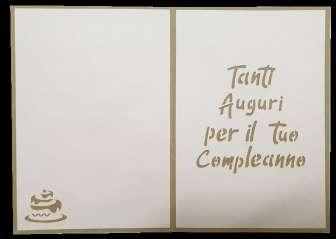 Tanti
Auguri
per il Tuo
Compleanno